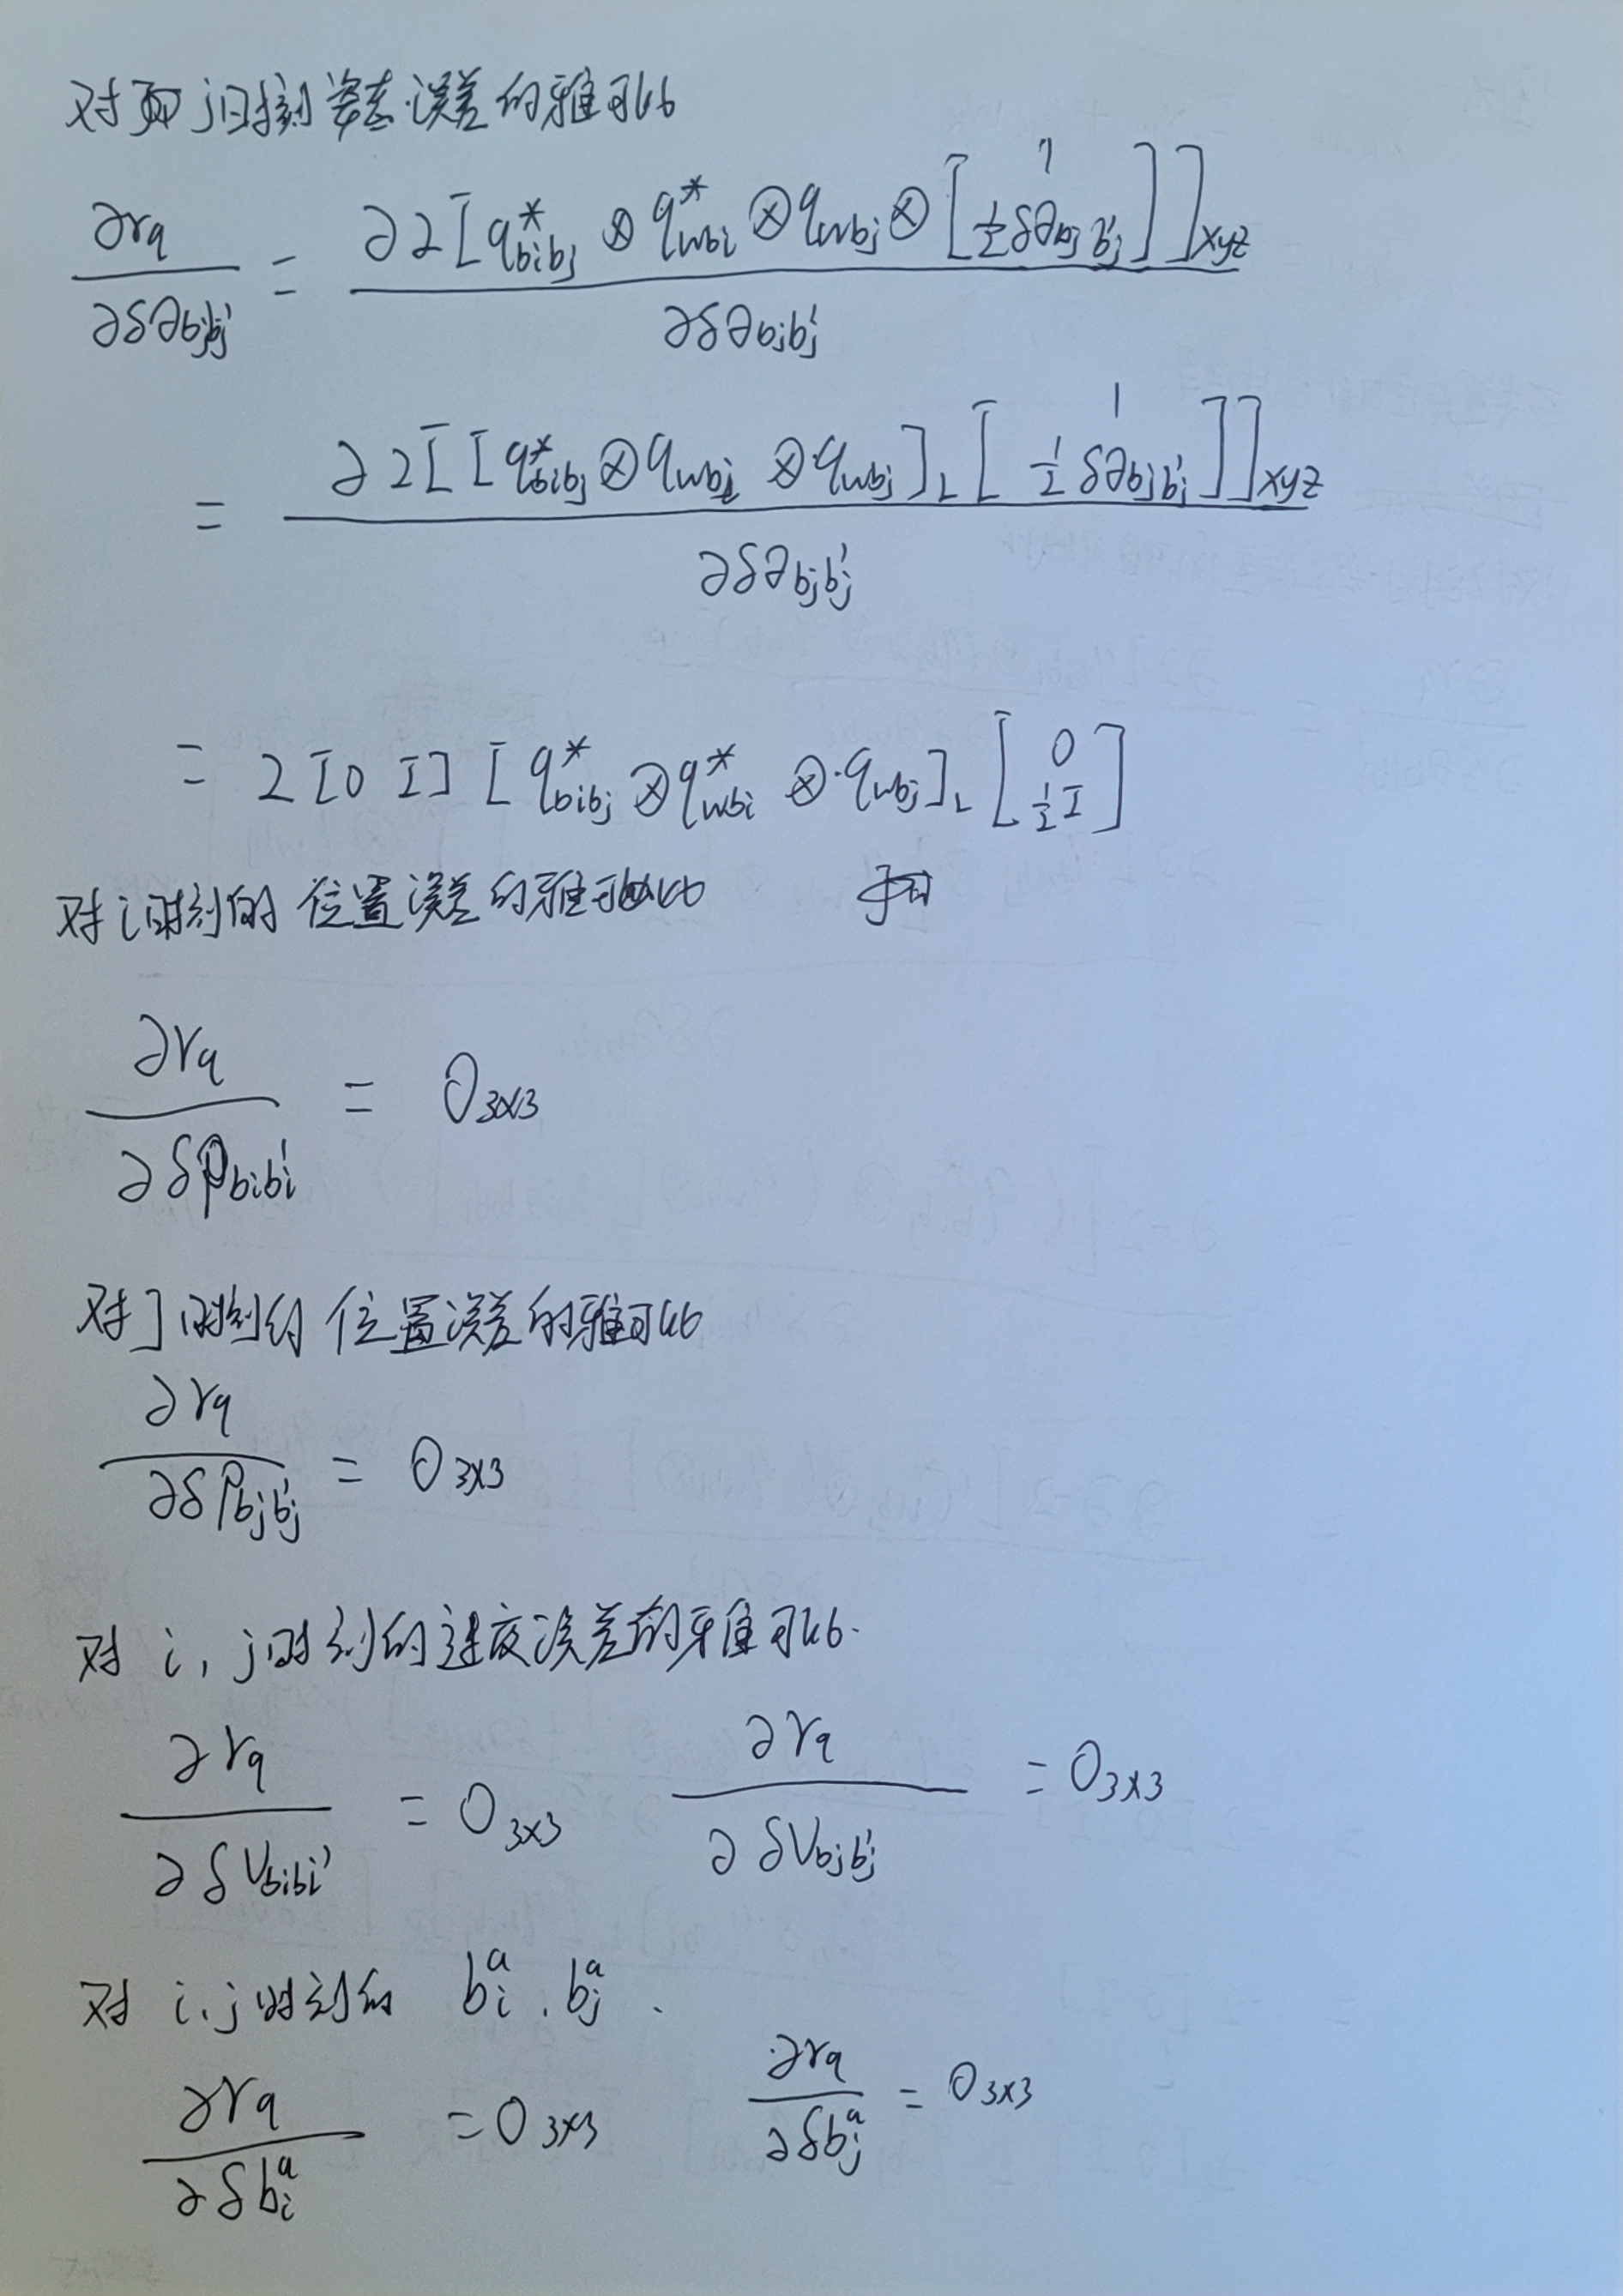 对 j时刻姿态误差的雅可比
∂rq/∂δθbjbj' = ∂2[q*bibj ⊗ q*wbi ⊗ qwbj ⊗ [1 ½δθbjbj']]xyz / ∂δθbjbj'
= ∂2[[q*bibj ⊗ qwbi ⊗ qwbj]L [1 ½δθbjbj']]xyz / ∂δθbjbj'
= 2[0 I][q*bibj ⊗ q*wbi ⊗ qwbj]L [0 ½I]
对i时刻的 位置误差的雅可比
∂rq/∂δpbibi' = 03×3
对j时刻的 位置误差的雅可比
∂rq/∂δpbjbj' = 03×3
对 i, j时刻的速度误差的雅可比.
∂rq/∂δVbibi' = 03×3 ∂rq/∂δVbjbj' = 03×3
对 i, j时刻的 bia, bja.
∂rq/∂δbia = 03×3 ∂rq/∂δbja = 03×3